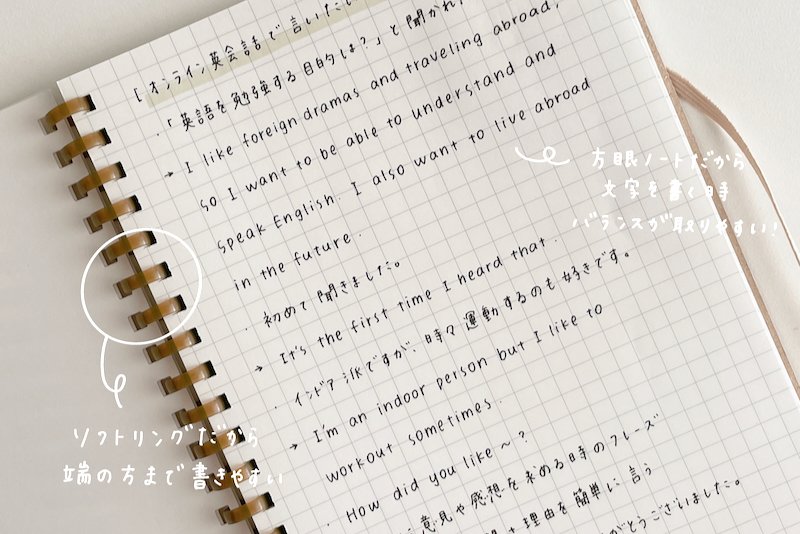 [オンライン英会話で言いたい
・「英語を勉強する目的は？」と聞かれ
→ I like foreign dramas and traveling abroad,
so I want to be able to understand and
speak English. I also want to live abroad
in the future.
・初めて聞きました。
→ It's the first time I heard that.
・インドア派ですが、時々運動するのも好きです。
→ I'm an indoor person but I like to
workout sometimes.
・How did you like ~ ?
意見や感想を求める時のフレーズ
理由を簡単に言う
がとうございました。
方眼ノートだから
文字を書く時
バランスが取りやすい!
ソフトリングだから
端の方まで書きやすい